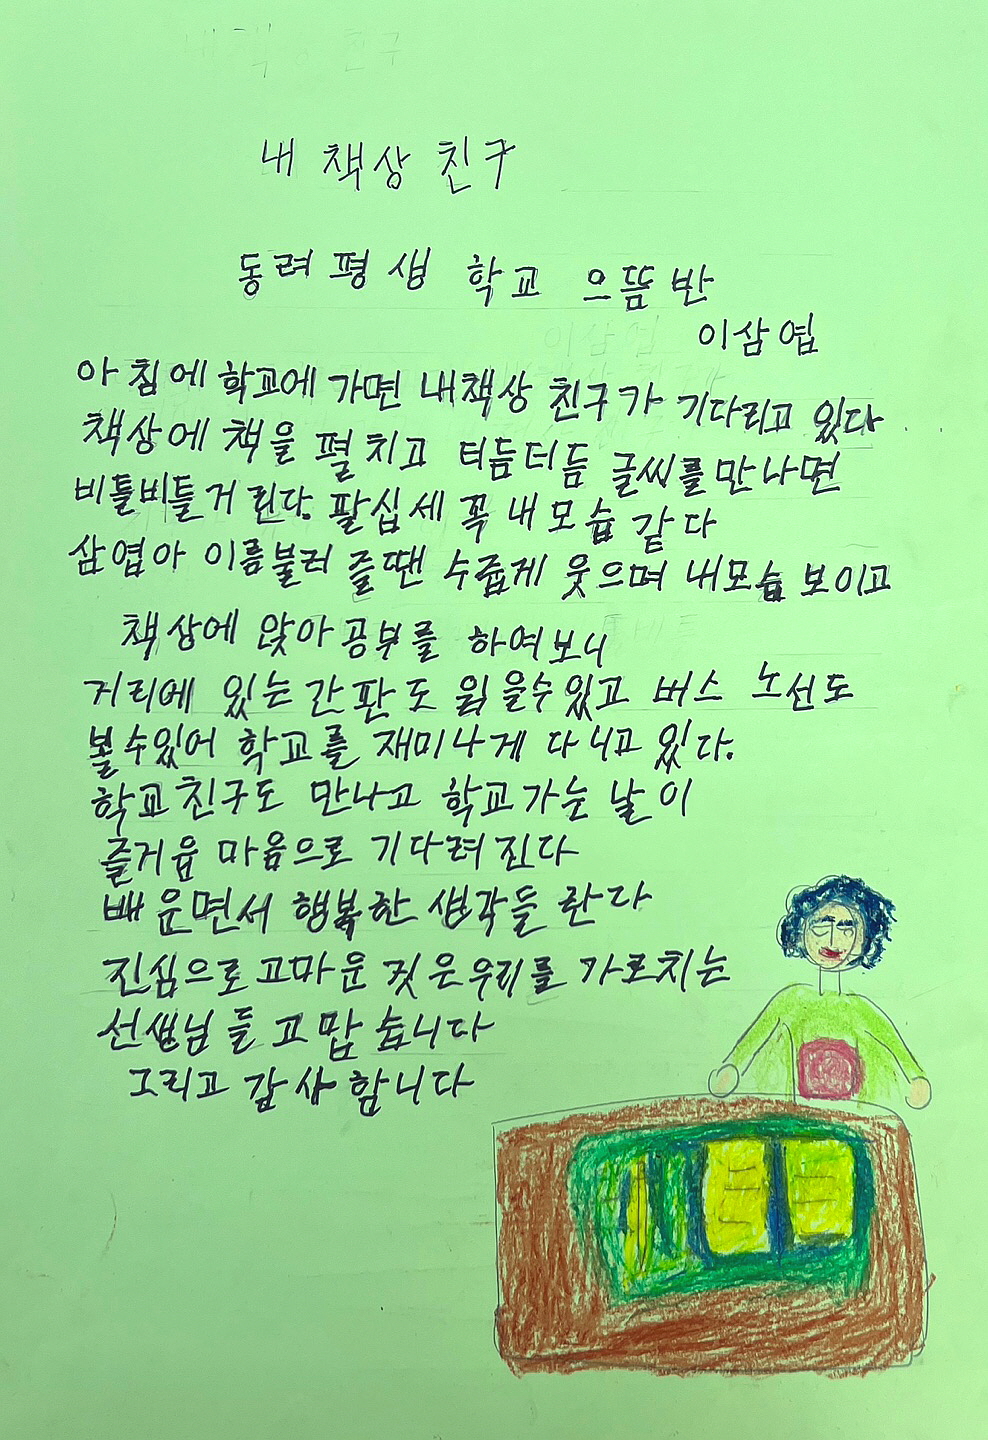 내 책상 친구
동려 평생 학교 으뜸반
이삼엽
아침에 학교에 가면 내책상 친구가 기다리고 있다
책상에 책을 펼치고 터듬터듬 글씨를 만나면
비틀비틀거린다. 팔십세 꼭 내모습 같다
삼엽아 이름불러 줄땐 수줍게 웃으며 내모습 보이고
책상에 앉아 공부를 하여보니
거리에 있는 간판도 읽을수있고 버스 노선도
볼수있어 학교를 재미나게 다니고 있다.
학교친구도 만나고 학교가는 날이
즐거운 마음으로 기다려 진다
배운면서 행복한 생각들 란다
진심으로 고마운 것은우리를 가르치는
선생님들 고맙습니다
그리고 감사 합니다